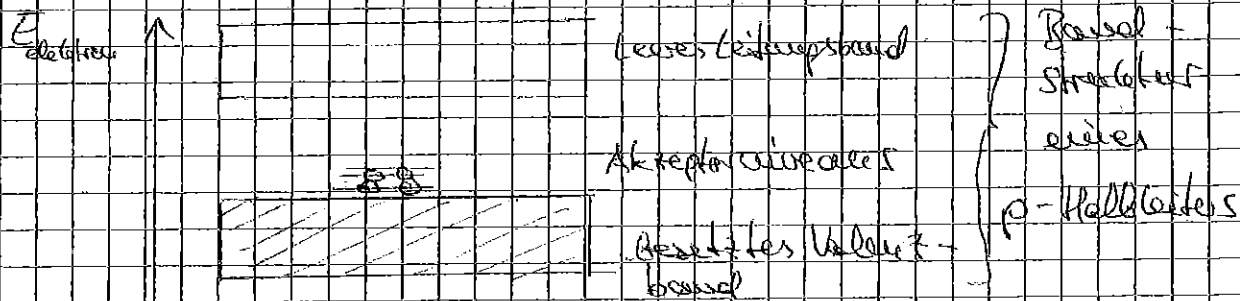 E elektron
Leeres Leitungsband
Akzeptorniveaus
Besetztes Valenz-
band
Band-
struktur
eines
p-Halbleiters